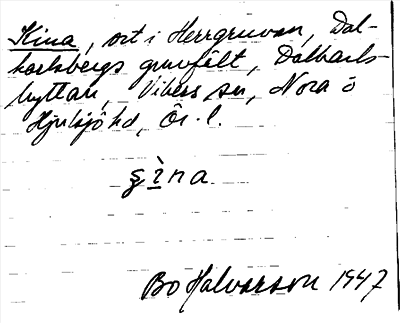 Kina, ort i Herrgruvan, Dal-
karlsbergs gruvfält, Dalkarls-
hyttan, Vikers sn, Nora o
Hjulsjö hd, Ör. l.
ʂìna
Bo Halvarson 1947